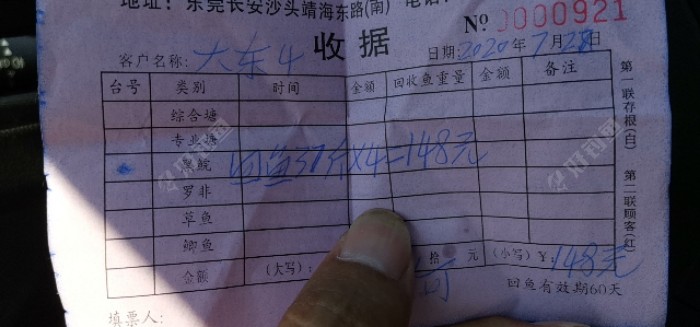 地址：东莞长安沙头靖海东路(南) 电话
收据
№ 0000921
客户名称：大东4
日期：2020年7月28日
台号 类别 时间 金额 回收鱼重量 金额 备注
综合塘
专业塘
黑鲩
回鱼37斤×4=148元
罗非
草鱼
鲫鱼
金额 (大写)： 拾 元 (小写)¥ 148元
回鱼有效期60天
填票人：
第一联存根(白) 第二联顾客(红)